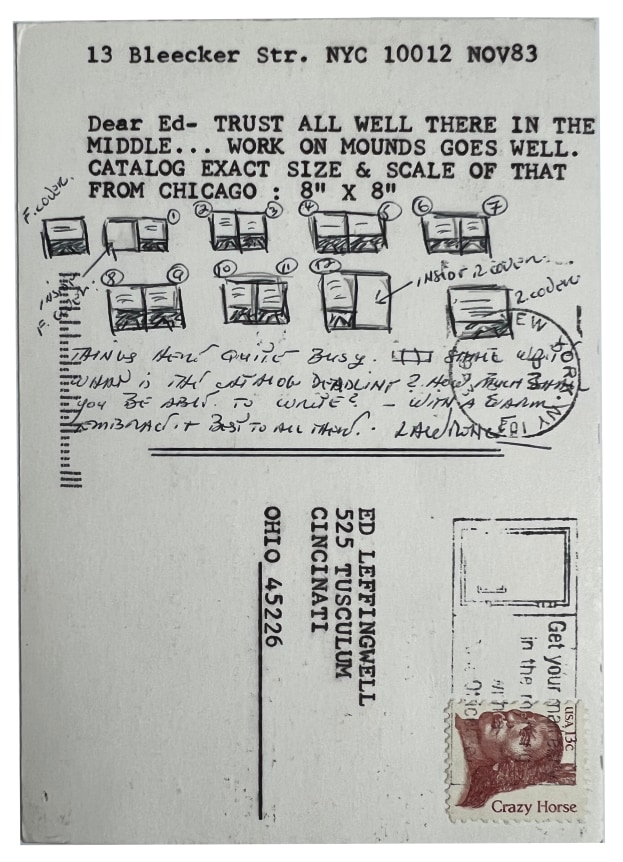 13 Bleecker Str. NYC 10012 NOV83
Dear Ed- TRUST ALL WELL THERE IN THE
MIDDLE... WORK ON MOUNDS GOES WELL.
CATALOG EXACT SIZE & SCALE OF THAT
FROM CHICAGO : 8" X 8"
F. COVER.
1
2
3
4
5
6
7
8
9
10
11
12
INSIDE 2 COVER...
2 COVER
THINGS HERE QUITE BUSY.
WHAT IS THE CATALOG DEADLINE? HOW MUCH
YOU BE ABLE TO WRITE? - WITH A WARM
EMBRACE & BEST TO ALL THERE. LAWRENCE
NEW YORK, NY
ED LEFFINGWELL
525 TUSCULUM
CINCINATI
OHIO 45226
Get your
in the
USA 13c
Crazy Horse